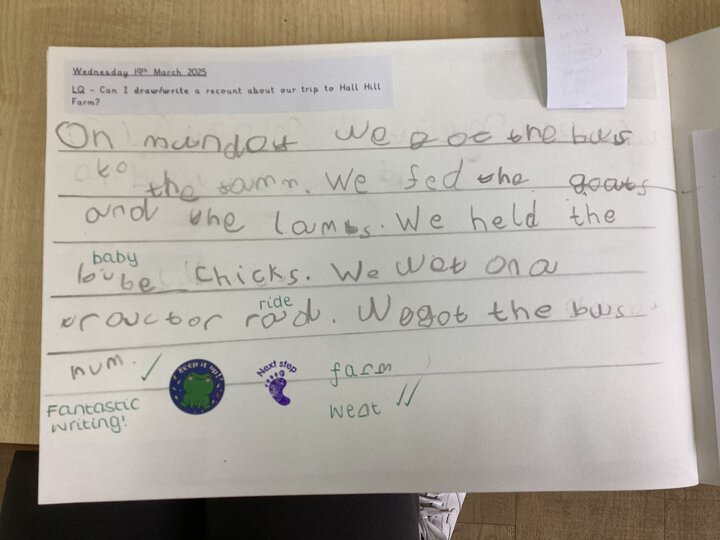 Wednesday 19th March 2025
LQ - Can I draw/write a recount about our trip to Hall Hill
Farm?
On mundat we got the bus
to the tamn. We fed the goats
and the lambs. We held the
baby
boube chicks. We wet on a
ride
tractor rad. We got the bus
hum.
Keep it up!
Next step
farm
went
Fantastic
writing!